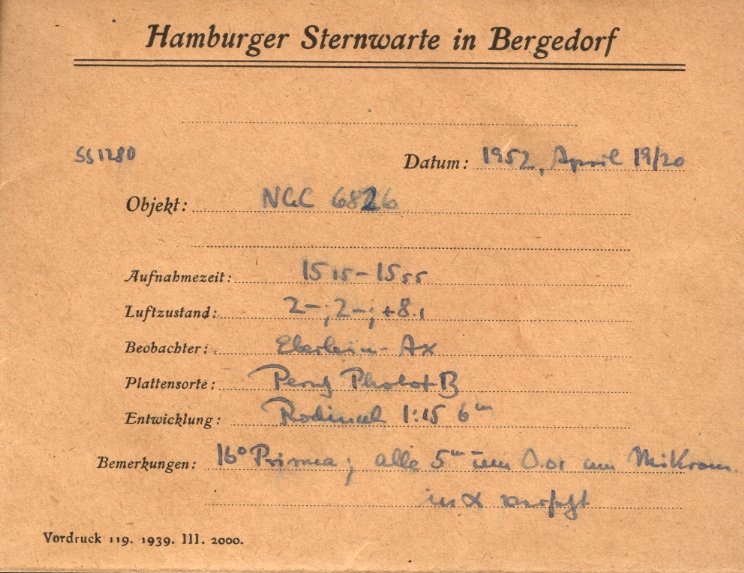 Hamburger Sternwarte in Bergedorf
SS1280
Datum: 1952, April 19/20
Objekt: NGC 6826
Aufnahmezeit: 15 15 – 15 55
Luftzustand: 2–; 2–; +8.1
Beobachter: Eberlein - Ax
Plattensorte: Perutz Photot
Entwicklung: Rodinal 1:15 6m
Bemerkungen: 16° Prisma; alle 5m um 0.01 am Mikrom.
in α versetzt
Vordruck 119. 1939. III. 2000.